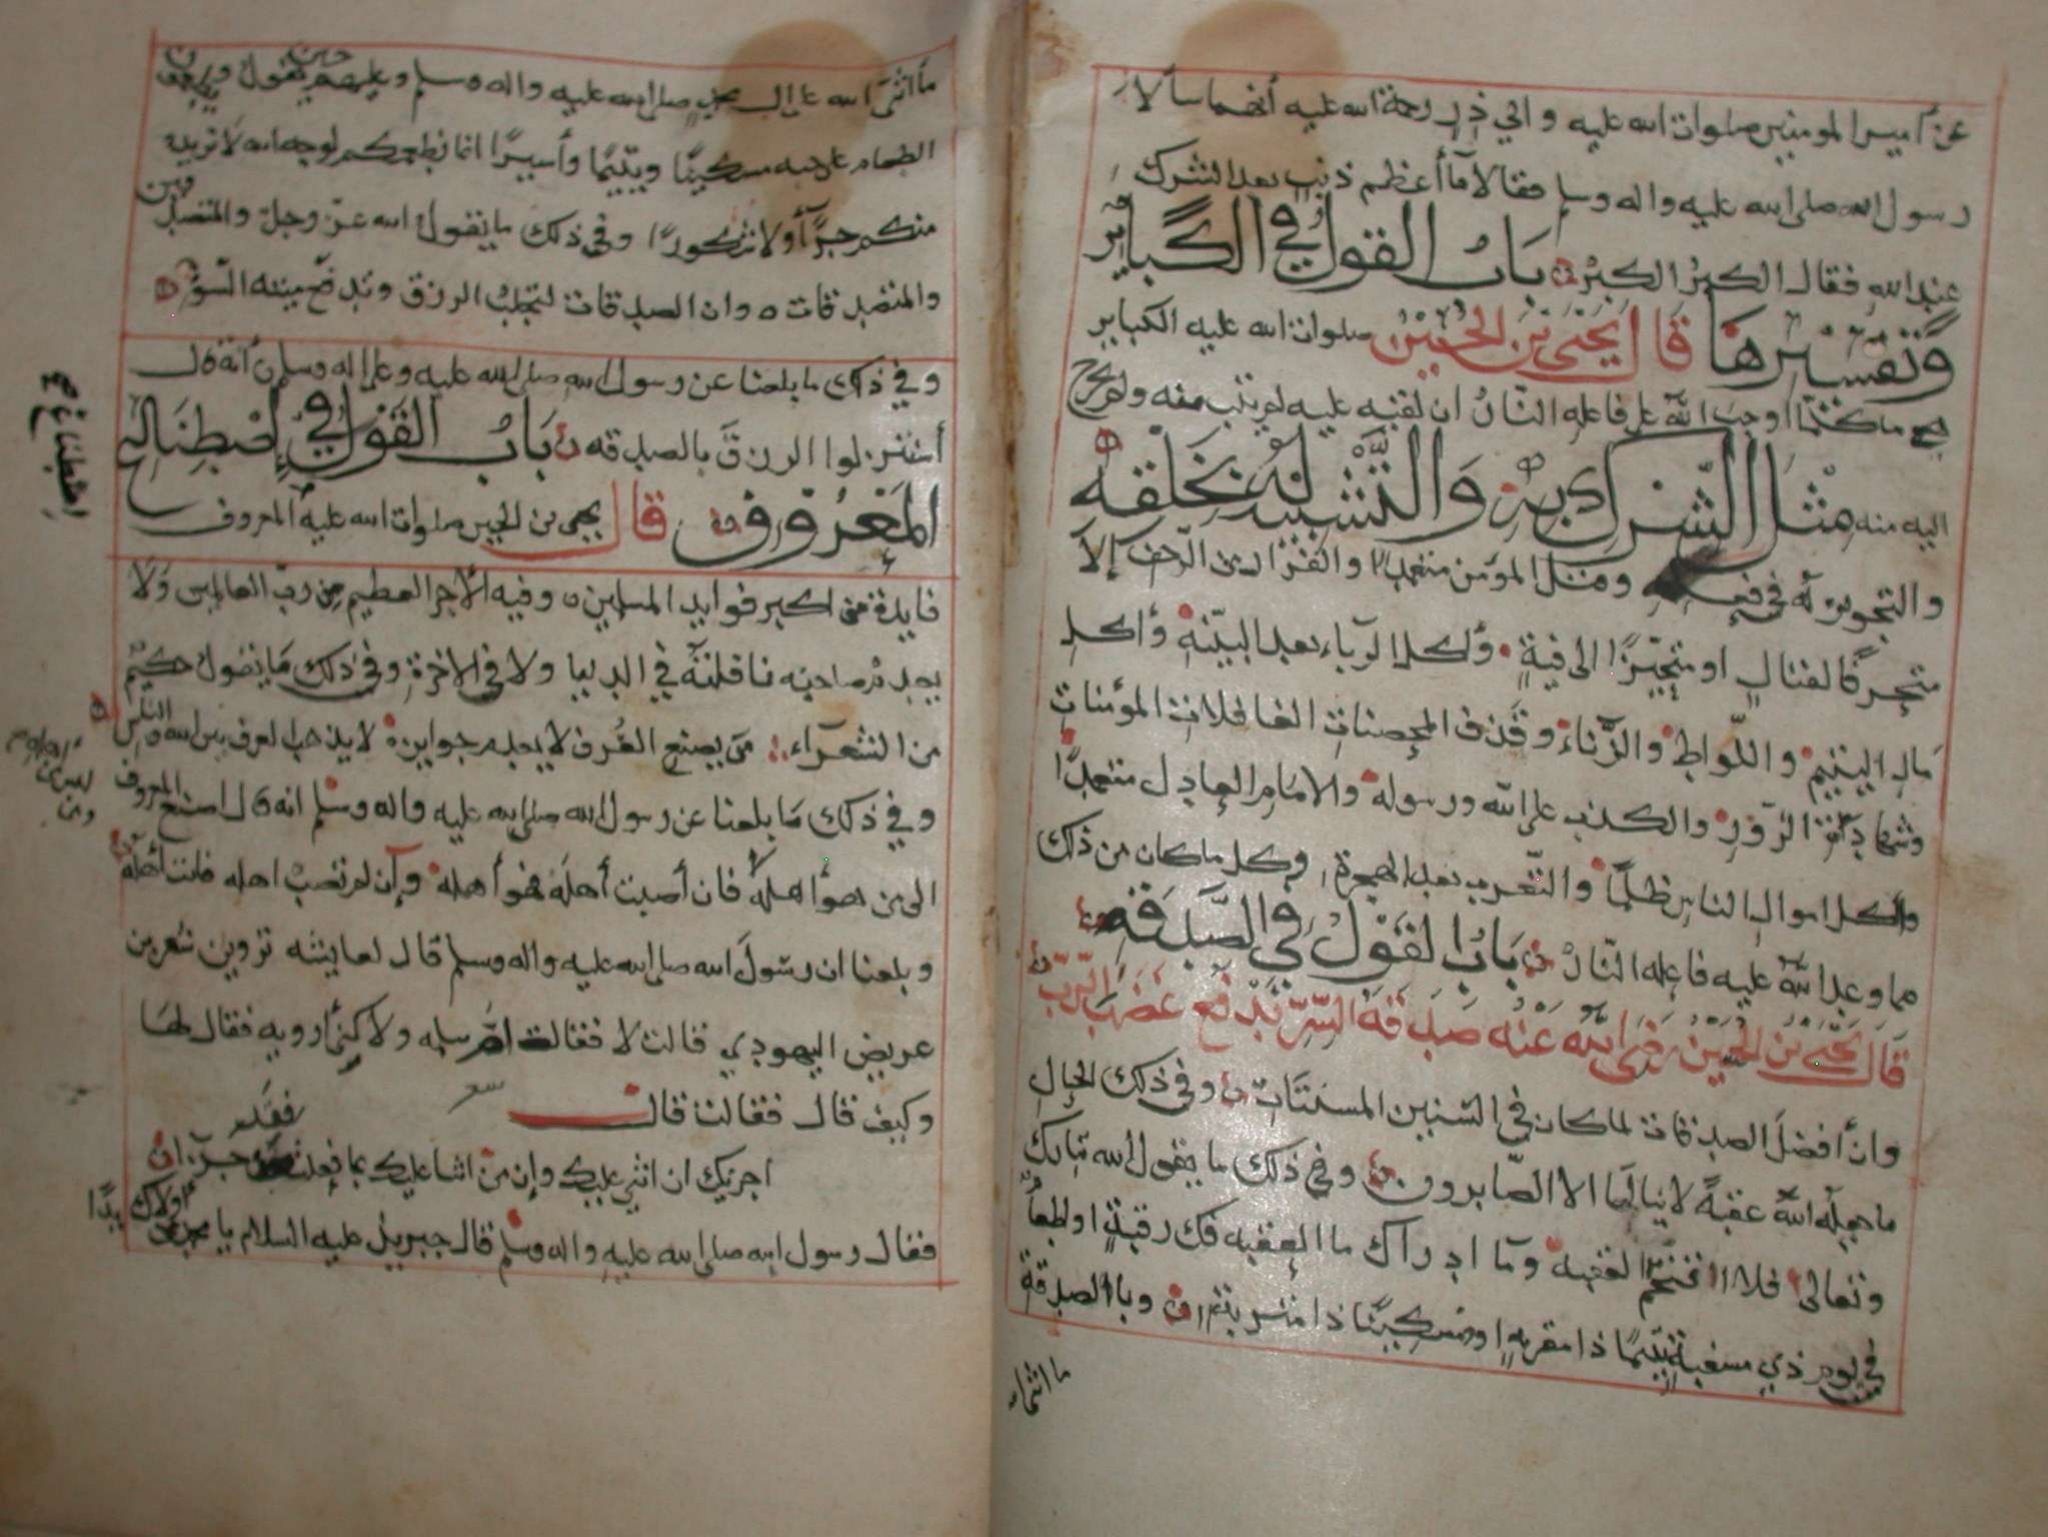 عن أمير المومنين صلوات الله عليه وابي ذر رحمة الله عليه أنهما سألا
رسول الله صلى الله عليه واله وسلم فقالا ما أعظم ذنب بعد الشرك
عند الله فقال الكبر الكبر باب القول في الكباير
وتفسيرها قال يحيى بن الحسين صلوات الله عليه الكباير
هي ما كلما اوجب الله على فاعله النار ان لقيه عليه لم يتب منه ولم يخرج
اليه منه مثل الشرك به والتشبيه له بخلقه
والتجوير له في فعله ومثل قتل المؤمن متعمدا والفرار من الزحف إلا
متحرفا لقتال او متحيزا الى فية وأكل الرباء بعد البينة وأكل
مال اليتيم واللواط والزناء وقذف المحصنات الغافلات المؤمنات
وشهادة الزور والكذب على الله ورسوله والامام العادل متعمدا
وأكل اموال الناس ظلما والتعرب بعد الهجرة وكل ما كان من ذلك
مما وعد الله عليه فاعله النار باب القول في الصدقة
قال يحيى بن الحسين رضي الله عنه صدقة السر تدفع غضب الرب
وان افضل الصدقات لما كان في السنين المسنتات وفي ذلك الحال
ما جعله الله عقبة لا ينالها الا الصابرون وفي ذلك ما يقول الله تبارك
وتعالى فلا اقتحم العقبه وما ادراك ما العقبه فك رقبة او إطعام
في يوم ذي مسغبة يتيما ذا مقربة او مسكينا ذا متربة وبالصدقة
ما اثنى
ما اثنى الله على ال محمد صلى الله عليه واله وسلم وعليهم حين يقول ويطعمون
الطعام على حبه مسكينا ويتيما وأسيرا انما نطعمكم لوجه الله لا نريد
منكم جزآء ولا شكورا وفي ذلك ما يقول الله عز وجل والمتصدقين
والمتصدقات وان الصدقات لتجلب الرزق وتدفع ميتة السوء
وفي ذلك ما بلغنا عن رسول الله صلى الله عليه وعلى اله وسلم أنه قال
أستنزلوا الرزق بالصدقه باب القول في إصطناع
المعروف قال يحيى بن الحسين صلوات الله عليه المعروف
إصطناع
فايدة من اكبر فوايد المسلمين وفيه الأجر العظيم من رب العالمين ولا
يعدم صاحبه نافلته في الدنيا ولا في الاخرة وفي ذلك ما يقول حكيم
من الشعرآء من يصنع العرف لا يعدم جوايزه لا يذهب العرف بين الله والناس
وفي ذلك ما بلغنا عن رسول الله صلى الله عليه واله وسلم انه قال اصنع المعروف
الى من هو أهله فان أصبت أهله فهو أهله وإن لم تصب اهله فانت أهله
وبلغنا ان رسول الله صلى الله عليه واله وسلم قال لعايشه تروين شعر بن
عريض اليهودي قالت لا فقالت ام سلمه ولاكني أرويه فقال لها
وكيف قال فقالت قال
اجزيك ان اثني عليك وإن من اثنا عليك بما فعلت فقد جزآ
فقال رسول الله صلى الله عليه واله وسلم قال جبريل عليه السلام يا محمد من أولاك يدا